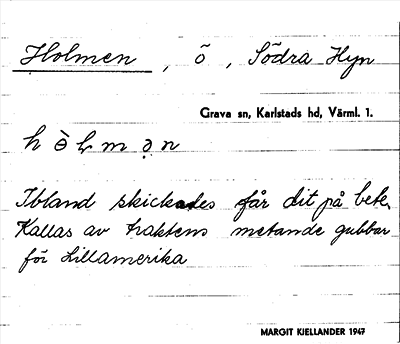 Holmen, ö, Södra Hyn
Grava sn, Karlstads hd, Värml. 1.
Ibland skickades får dit på bete.
Kallas av traktens metande gubbar
för Lillamerika
MARGIT KJELLANDER 1947